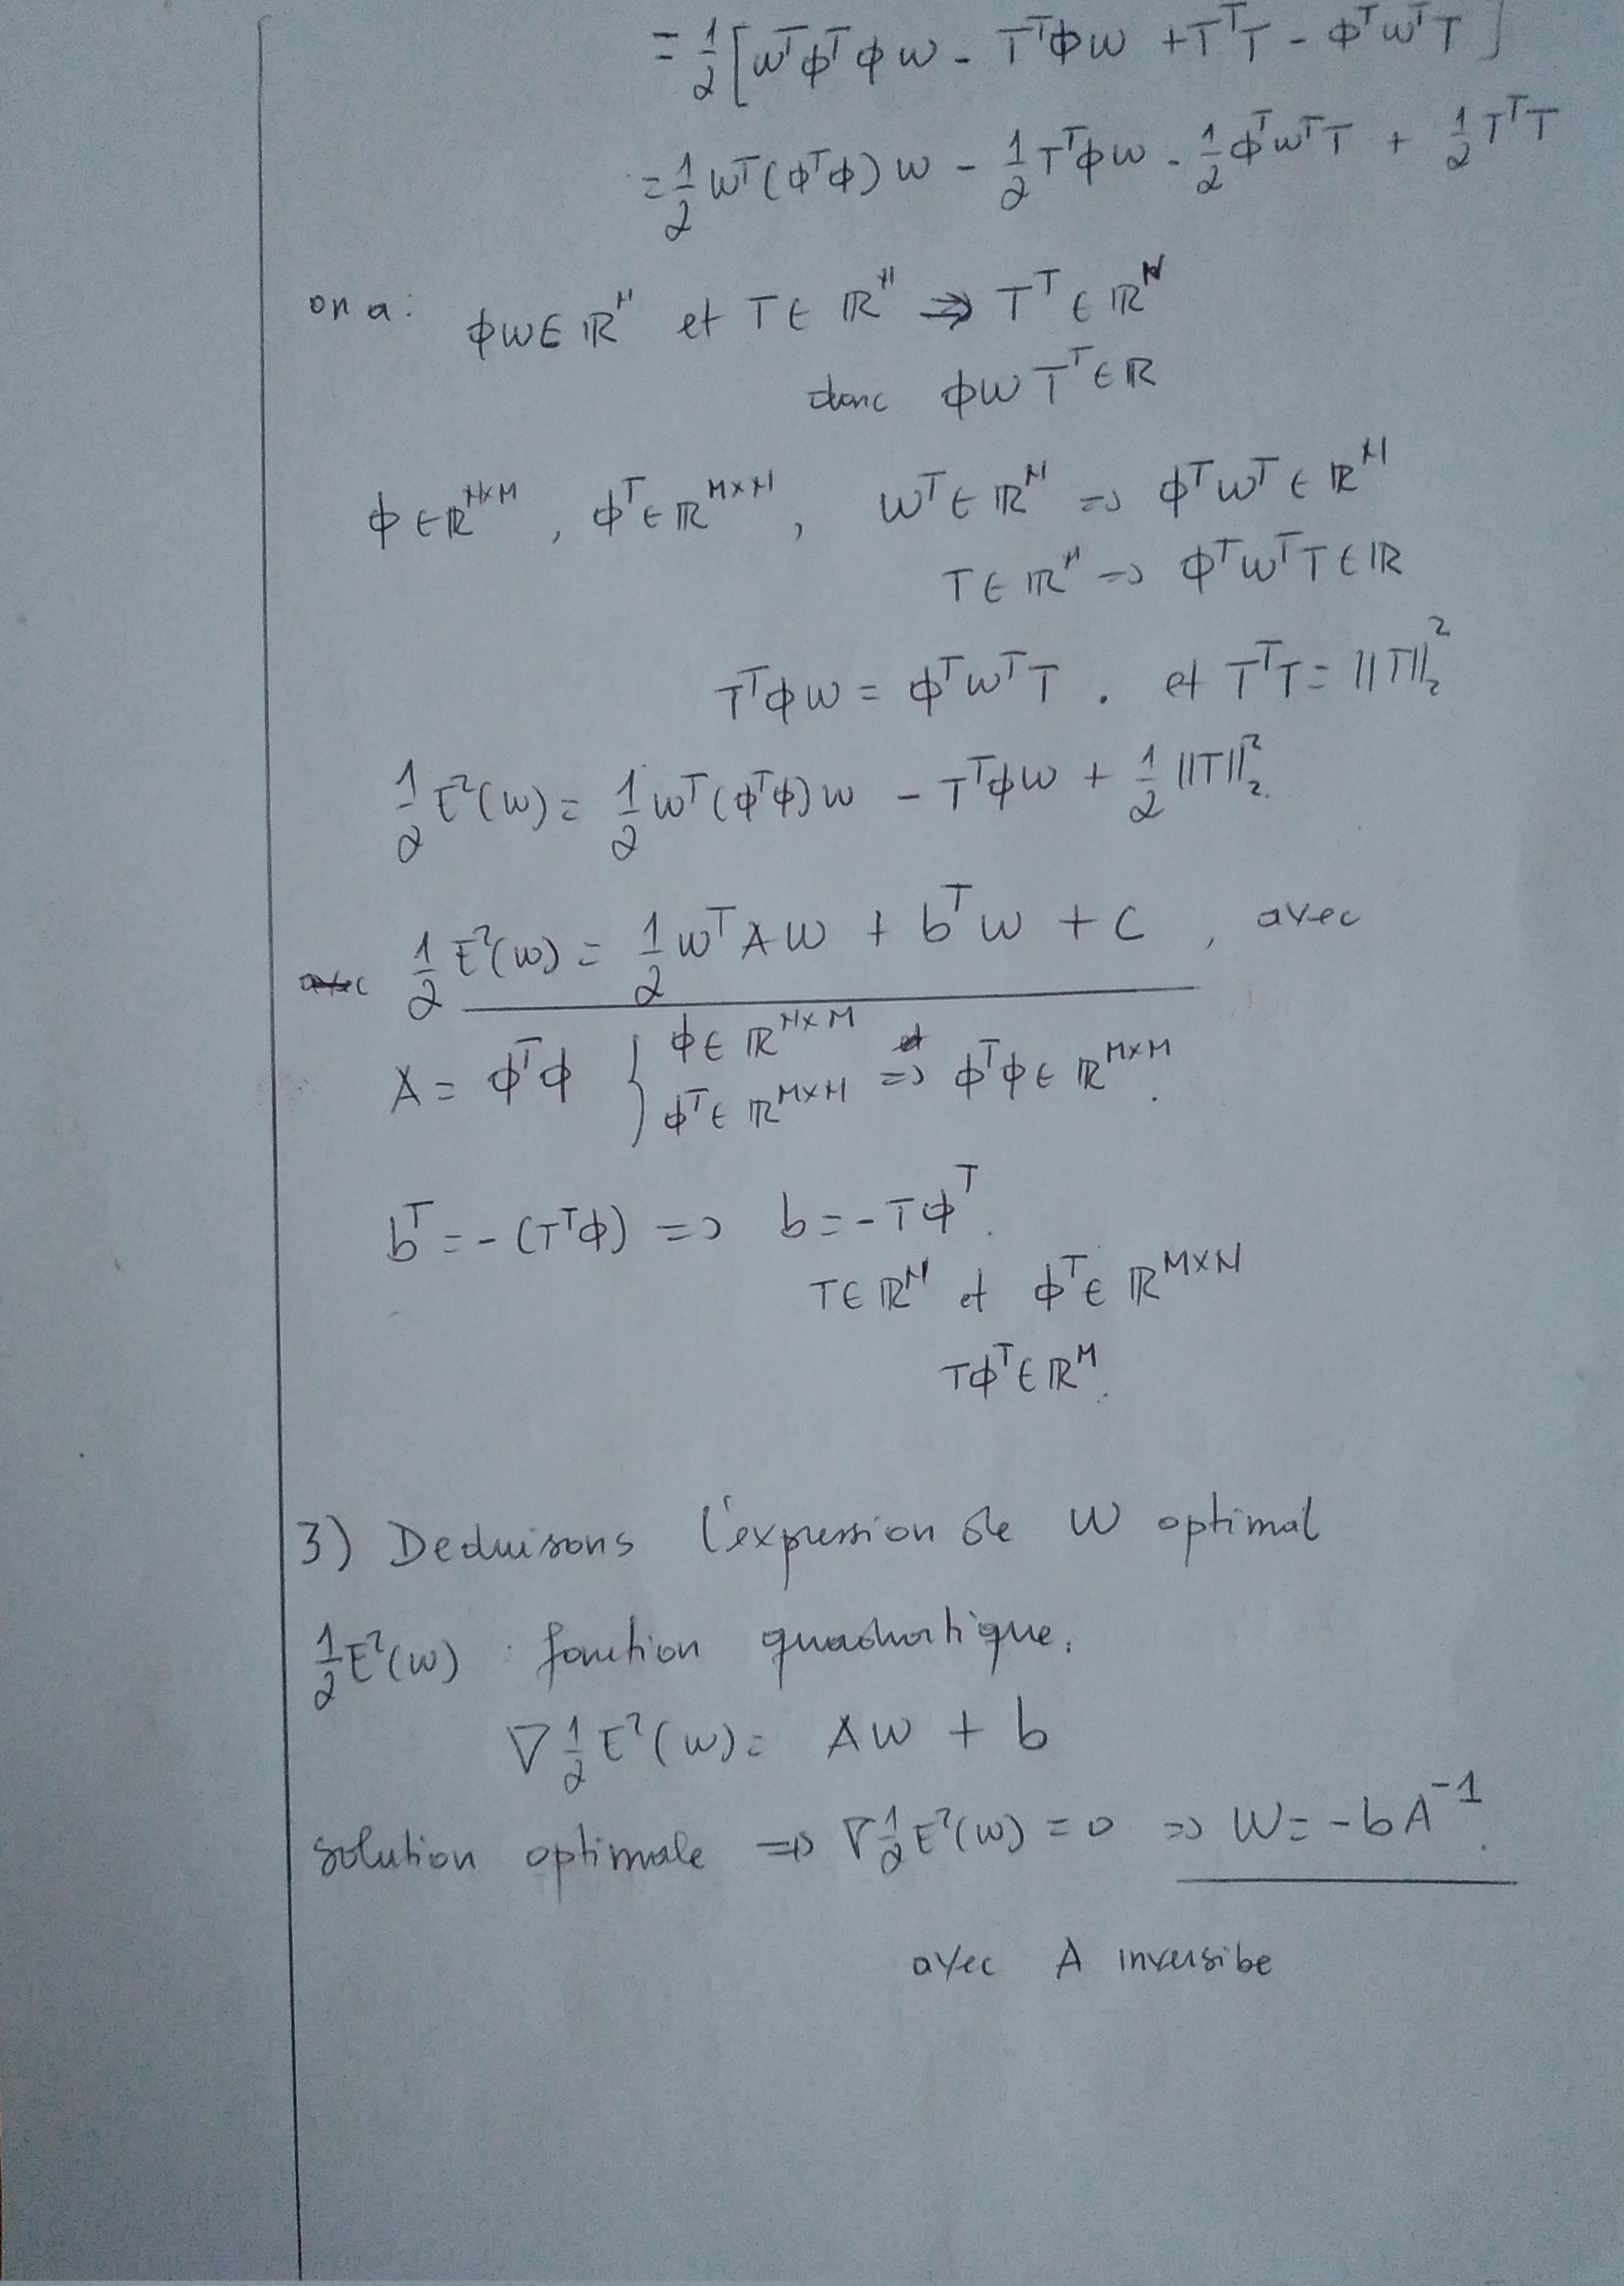 = 1/2 [wᵀϕᵀϕw - Tᵀϕw + TᵀT - ϕᵀwᵀT]
= 1/2 wᵀ(ϕᵀϕ)w - 1/2 Tᵀϕw - 1/2 ϕᵀwᵀT + 1/2 TᵀT
on a: ϕw ∈ ℝᴺ et T ∈ ℝᴺ ⇒ Tᵀ ∈ ℝᴺ
donc ϕw Tᵀ ∈ ℝ
ϕ ∈ ℝᴺˣᴹ, ϕᵀ ∈ ℝᴹˣᴺ, wᵀ ∈ ℝᴹ ⇒ ϕᵀwᵀ ∈ ℝᴺ
T ∈ ℝᴺ ⇒ ϕᵀwᵀT ∈ ℝ
Tᵀϕw = ϕᵀwᵀT . et TᵀT = ||T||₂²
1/2 E²(w) = 1/2 wᵀ(ϕᵀϕ)w - Tᵀϕw + 1/2 ||T||₂².
1/2 E²(w) = 1/2 wᵀAw + bᵀw + C , avec
A = ϕᵀϕ { ϕ ∈ ℝᴺˣᴹ
ϕᵀ ∈ ℝᴹˣᴺ ⇒ ϕᵀϕ ∈ ℝᴹˣᴹ.
bᵀ = -(Tᵀϕ) ⇒ b = -Tϕᵀ.
T ∈ ℝᴺ et ϕᵀ ∈ ℝᴹˣᴺ
Tϕᵀ ∈ ℝᴹ.
3) Deduisons l'expression de w optimal
1/2 E²(w) : fonction quadratique.
∇ 1/2 E²(w) = Aw + b
solution optimale ⇒ ∇ 1/2 E²(w) = 0 ⇒ W = -bA⁻¹.
avec A inversibe